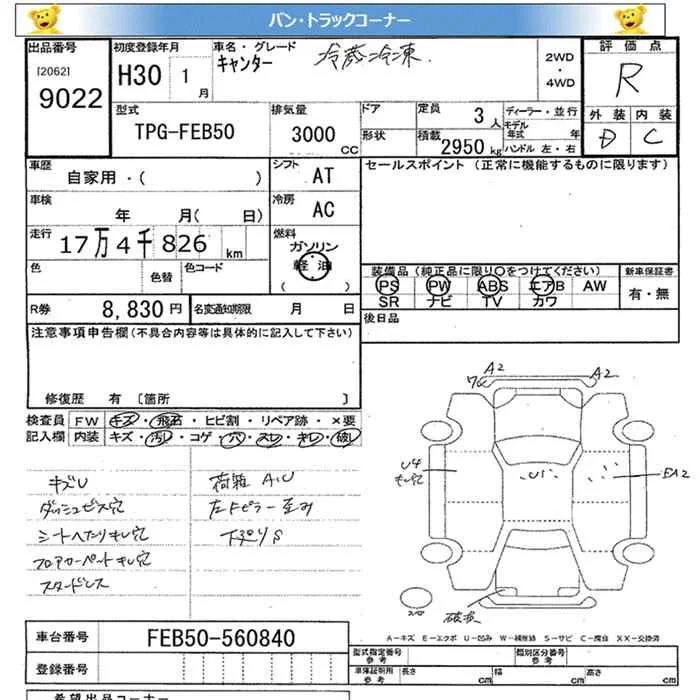 バン・トラックコーナー
出品番号 初度登録年月 車名・グレード 評価点
[2062] H30 1月 キャンター 冷蔵冷凍 2WD・4WD R
9022
型式 排気量 ドア 定員 3人 ディーラー・並行 外装 内装
TPG-FEB50 3000 CC 形状 積載 2950 kg モデル年式 年 D C
ハンドル 左・右
車歴 シフト AT セールスポイント (正常に機能するものに限ります)
自家用・( )
車検 年 月( 日) 冷房 AC
走行 17万4千826 km 燃料 ガソリン
軽油
( )
色 色替 色コード
装備品(純正品に限り○をつけてください) 新車保証書
PS PW ABS エアB AW 有・無
SR ナビ TV カワ
R券 8,830円 名変通知期限 月 日 後日品
注意事項申告欄(不具合内容等は具体的に記入して下さい)
修復歴 有 〔箇所 〕
検査員 FW キズ・飛石・ヒビ割・リペア跡・×要
記入欄 内装 キズ・汚れ・コゲ・穴・スレ・キレ・破レ
キズU
ダッシュビス穴
シートへたりキレ穴
フロアカーペットキレ穴
スタッドレス
荷箱 A.U
左Fピラー歪み
下廻りS
A2 A2
ワレ
U4
キレ穴
U1
EA2
破損
スペア
A-キズ E-エクボ U-凹み W-補修跡 S-サビ C-腐食 XX-交換済
車台番号 FEB50-560840
登録番号
型式指定番号 参考 類別区分番号 参考
車庫証明用 参考 長さ cm 幅 cm 高さ cm
希望出品コーナー